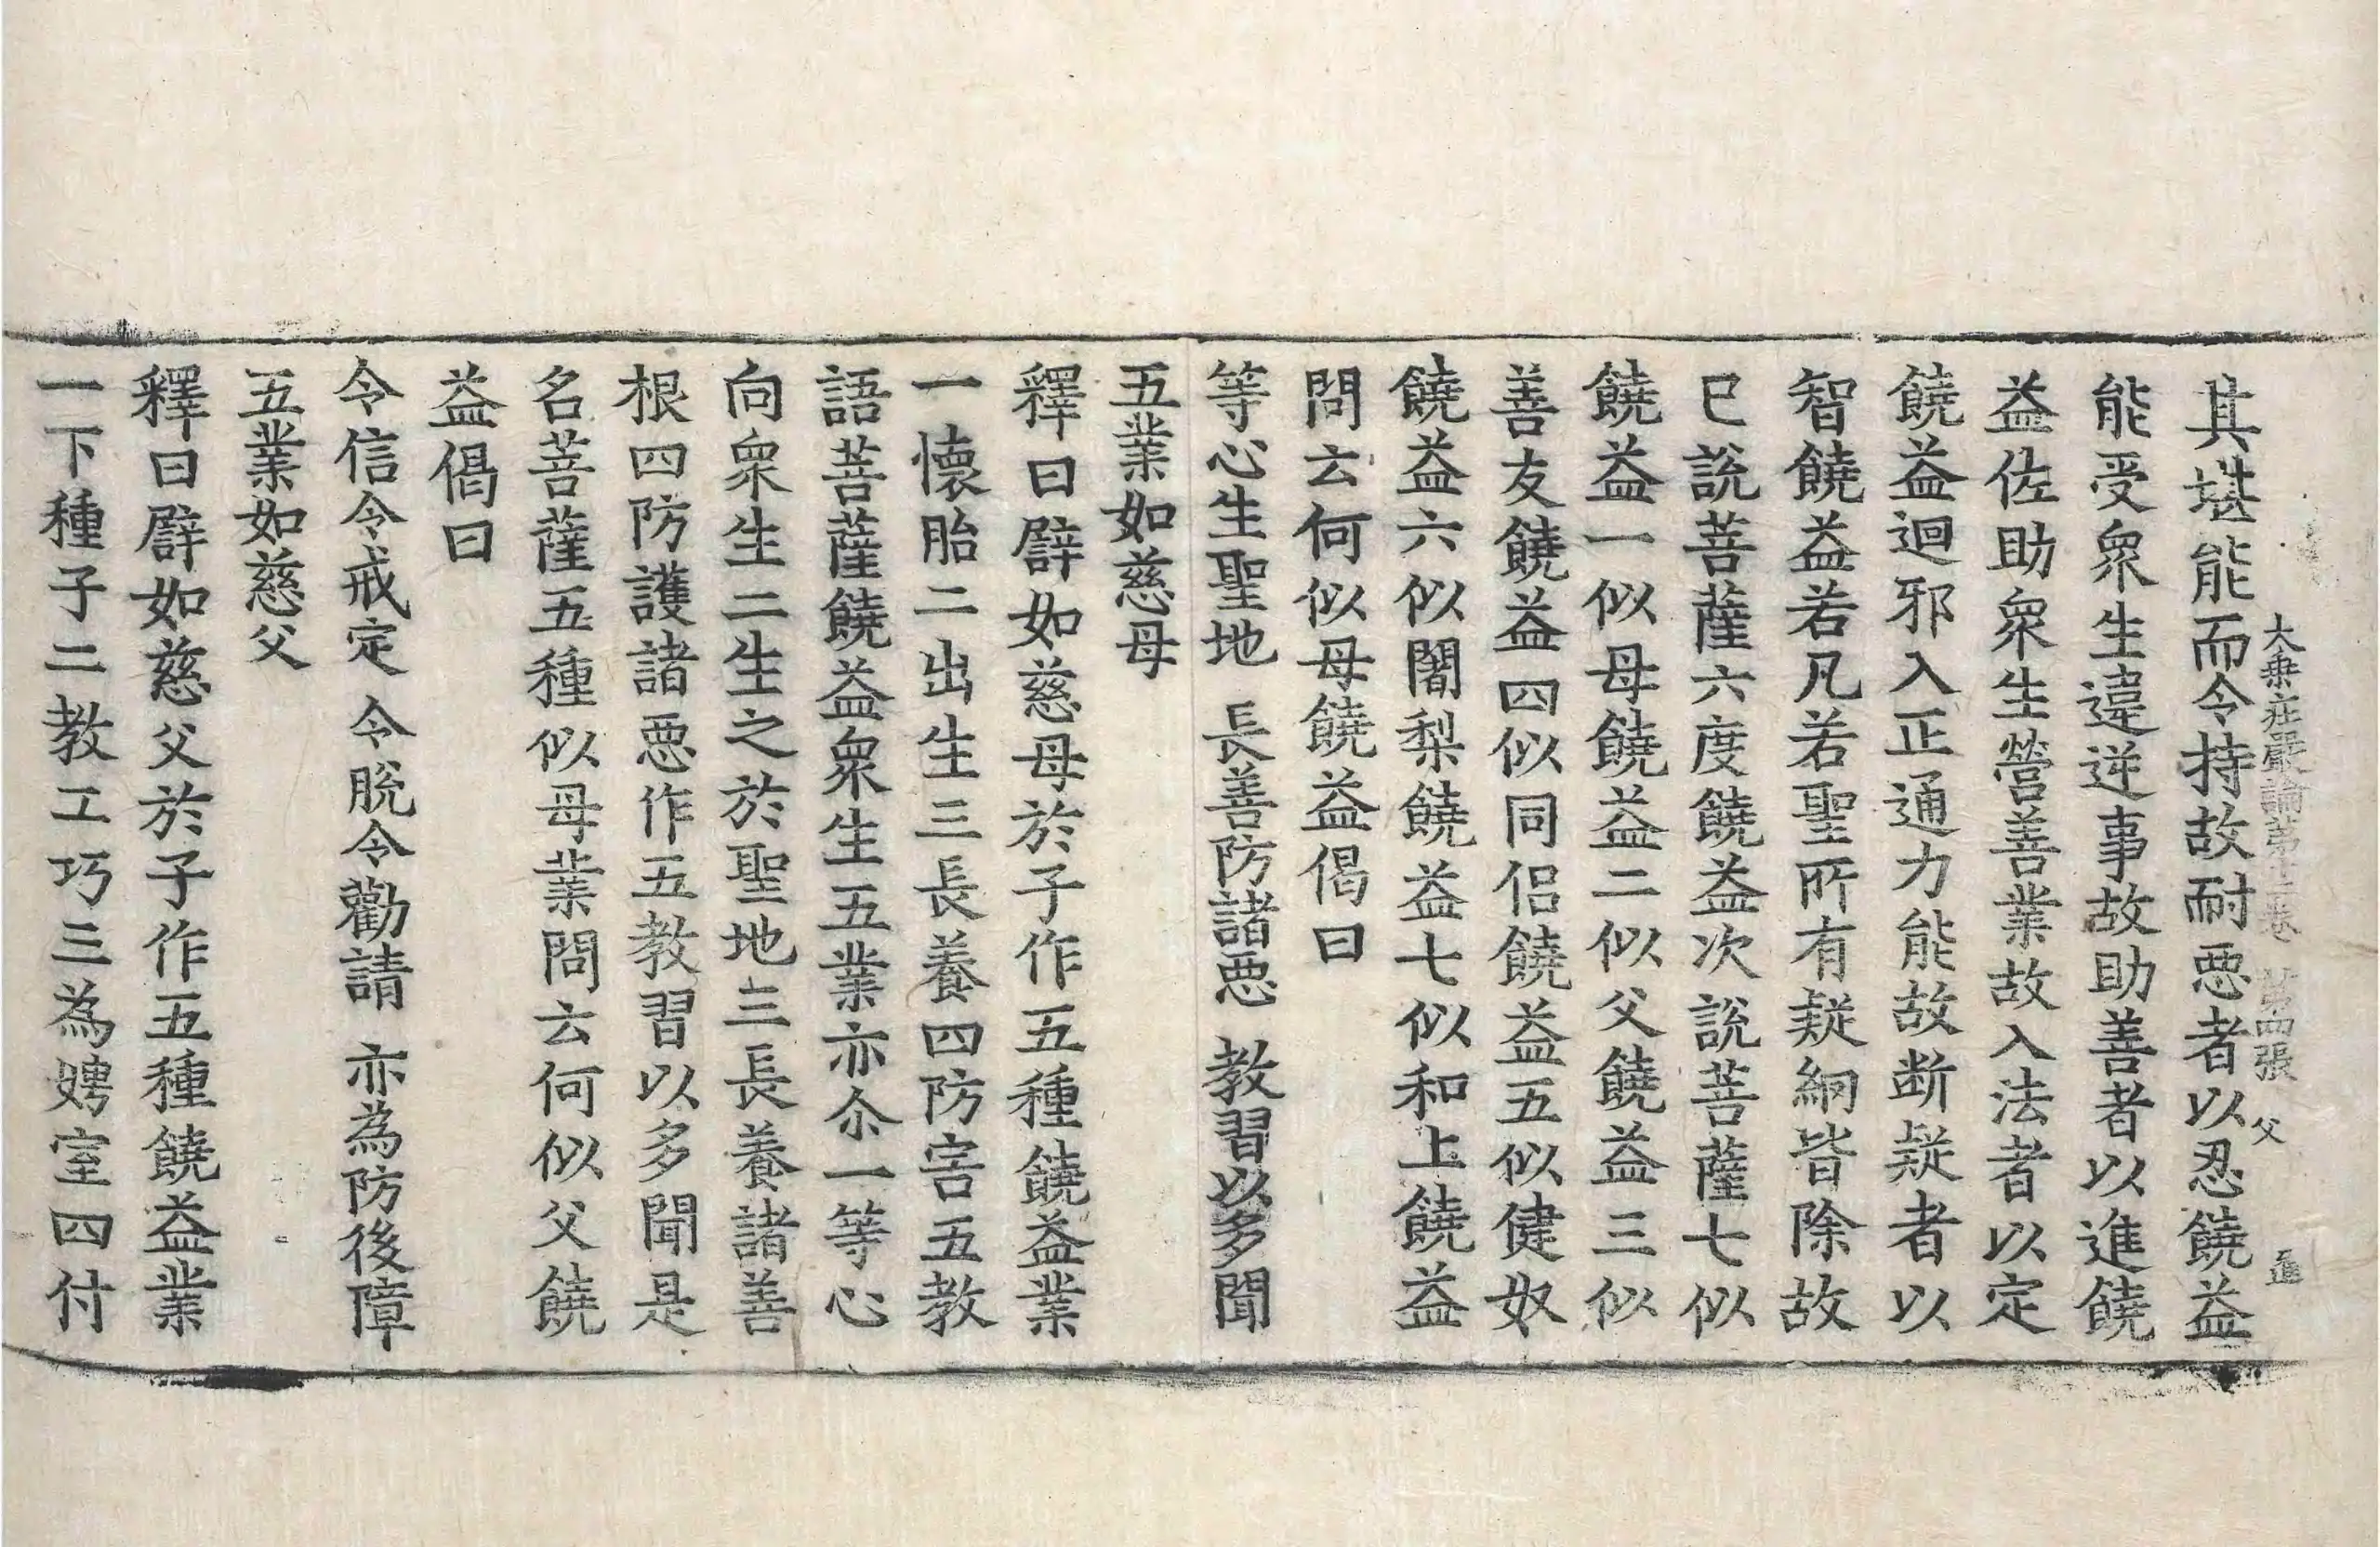 大乘莊嚴論第十二卷 第四張 父 進
其堪能而令持故耐惡者以忍饒益
能受衆生違逆事故助善者以進饒
益佐助衆生營善業故入法者以定
饒益迴邪入正通力能故断疑者以
智饒益若凡若聖所有疑網皆除故
已說菩薩六度饒益次說菩薩七似
饒益一似母饒益二似父饒益三似
善友饒益四似同侣饒益五似健奴
饒益六似闍梨饒益七似和上饒益
問云何似母饒益偈曰
等心生聖地 長善防諸惡 教習以多聞
五業如慈母
釋曰辟如慈母於子作五種饒益業
一懷胎二出生三長養四防害五教
語菩薩饒益衆生五業亦尒一等心
向衆生二生之於聖地三長養諸善
根四防護諸惡作五教習以多聞是
名菩薩五種似母業問云何似父饒
益偈曰
令信令戒定 令脫令勸請 亦為防後障
五業如慈父
釋曰辟如慈父於子作五種饒益業
一下種子二教工巧三為娉室四付